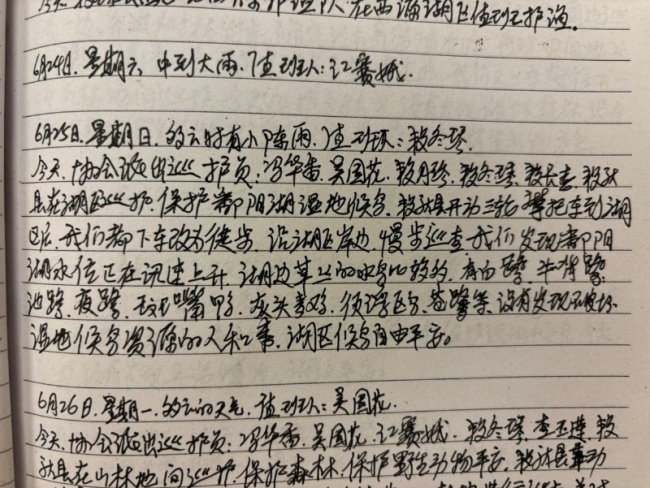 今天 护渔队在西源湖区值班护渔。
6月24日.星期六 中到大雨.值班人:江赛娥.
6月25日.星期日.多云时有小阵雨.值班班:敖冬琴.
今天.协会派出巡护员.冯华香.吴国花.敖月珍.敖冬琴.敖长春.敖
县在湖区巡护.保护鄱阳湖湿地候鸟.敖 县开动三轮 把车到湖
区后.我们都下车改为徒步.沿湖区岸边.慢步巡查我们发现鄱阳
湖水位正在迅速上升.湖边草丛的水鸟比较多.有白鹭.牛背鹭.
池鹭.夜鹭.斑嘴鸭. 苍鹭等.没有发现
湿地候鸟资源的人和事.湖区候鸟自由平安。
6月26日.星期一.多云的天气.值班人:吴国花.
今天.协会派出巡护员.冯华香.吴国花.江赛娥.敖冬琴.李玉莲.敖
县在山林地间巡护.保护森林.保护野生动物平安.敖 县 动